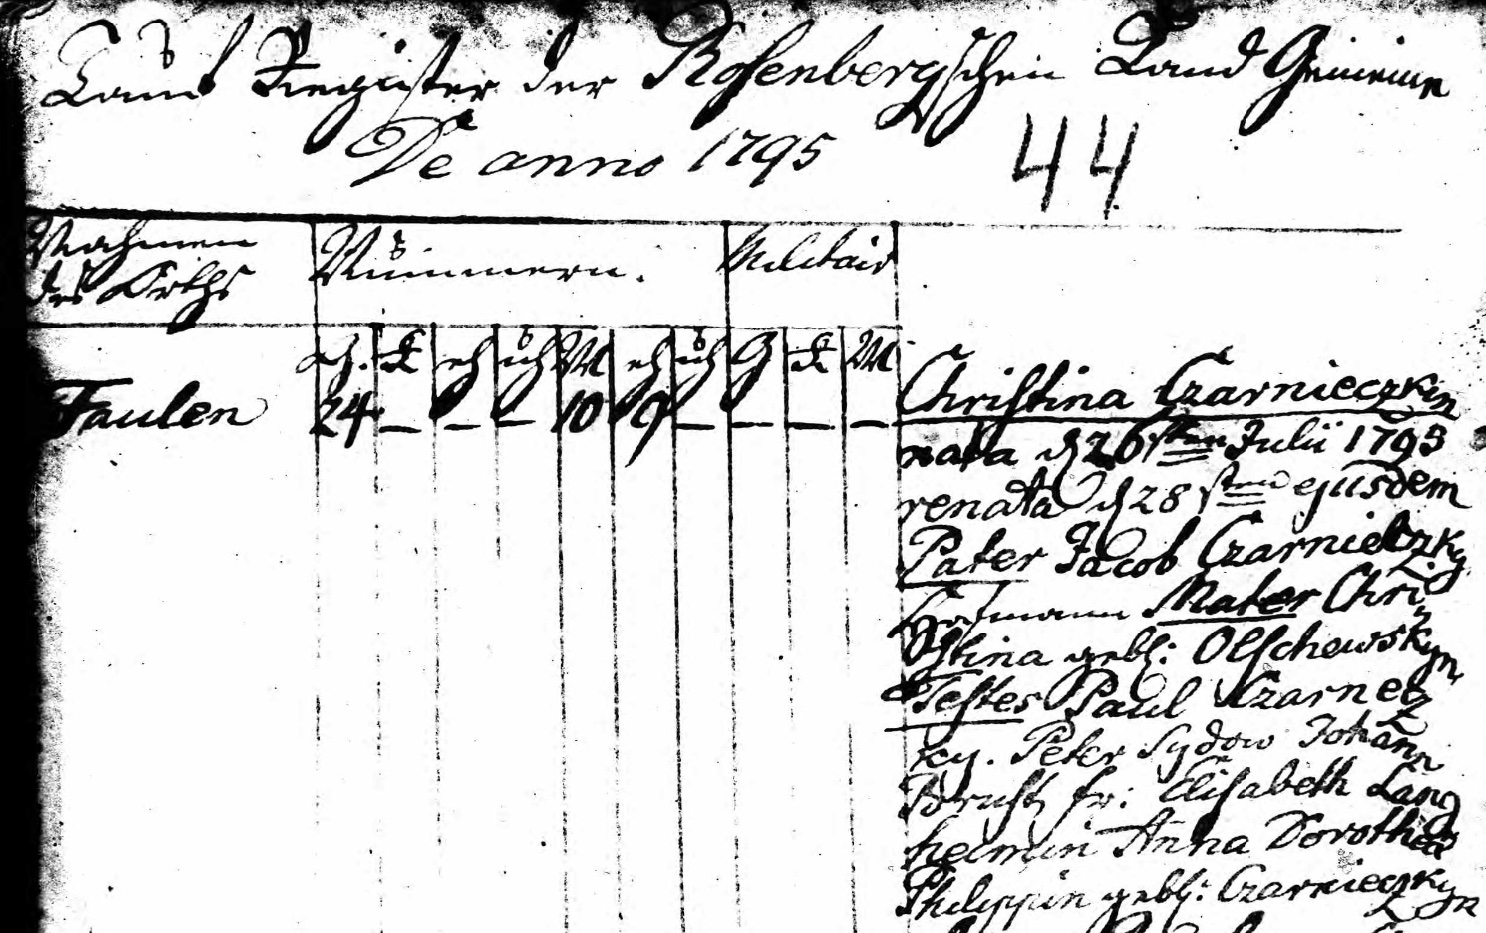 Tauf Register der Rosenbergschen Land Gemeine
De anno 1795
44
Nahmen
des Orths
Nummern.
Militair
eh. K eh uh M eh uh G K M
Faulen 24 — — — 10 9 — — — —
Christina Czarnieczkin
nata d 26sten Julii 1795
renata d 28sten ejusdem
Pater Jacob Czarnietzky
Mater Chri
stina gebl: Olschewskyn
Testes Paul Czarnetz
ky. Peter Sydow Johann
fr: Elisabeth Lang
heimin Anna Dorothea
Philippin gebl: Czarnieczkyn